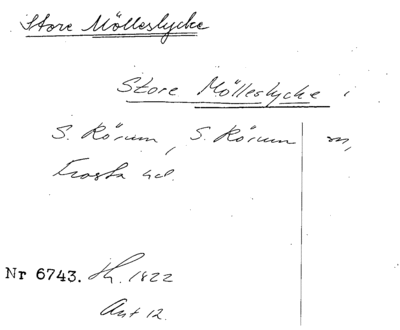 Store Mölleslycke
Store Mölleslycke
S. Rörum, S. Rörum sn,
Frosta hd.
Nr 6743. Sk. 1822
Akt 12.